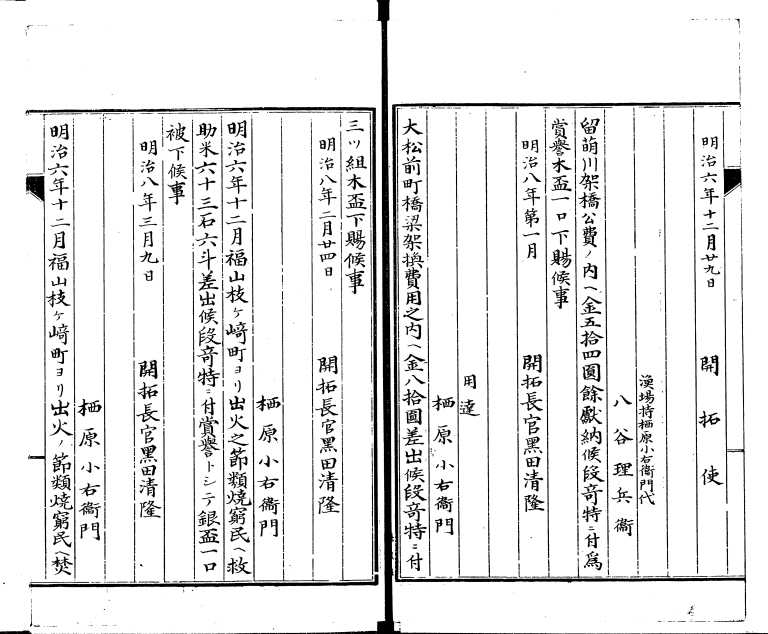 明治六年十二月廿九日　開拓使
漁場持栖原小右衞門代
八谷理兵衞
留萌川架橋公費ノ内ヘ金五拾四圓餘獻納候段竒特ニ付爲
賞譽木盃一口下賜候事
明治八年第一月　開拓長官黑田清隆
用達
栖原小右衞門
大松前町橋梁架換費用之内ヘ金八拾圓差出候段竒特ニ付
三ツ組木盃下賜候事
明治八年二月廿四日　開拓長官黑田清隆
栖原小右衞門
明治六年十二月福山枝ケ﨑町ヨリ出火之節類燒窮民ヘ救
助米六十三石六斗差出候段竒特ニ付賞譽トシテ銀盃一口
被下候事
明治八年三月九日　開拓長官黑田清隆
栖原小右衞門
明治六年十二月福山枝ケ﨑町ヨリ出火ノ節類燒窮民ヘ焚